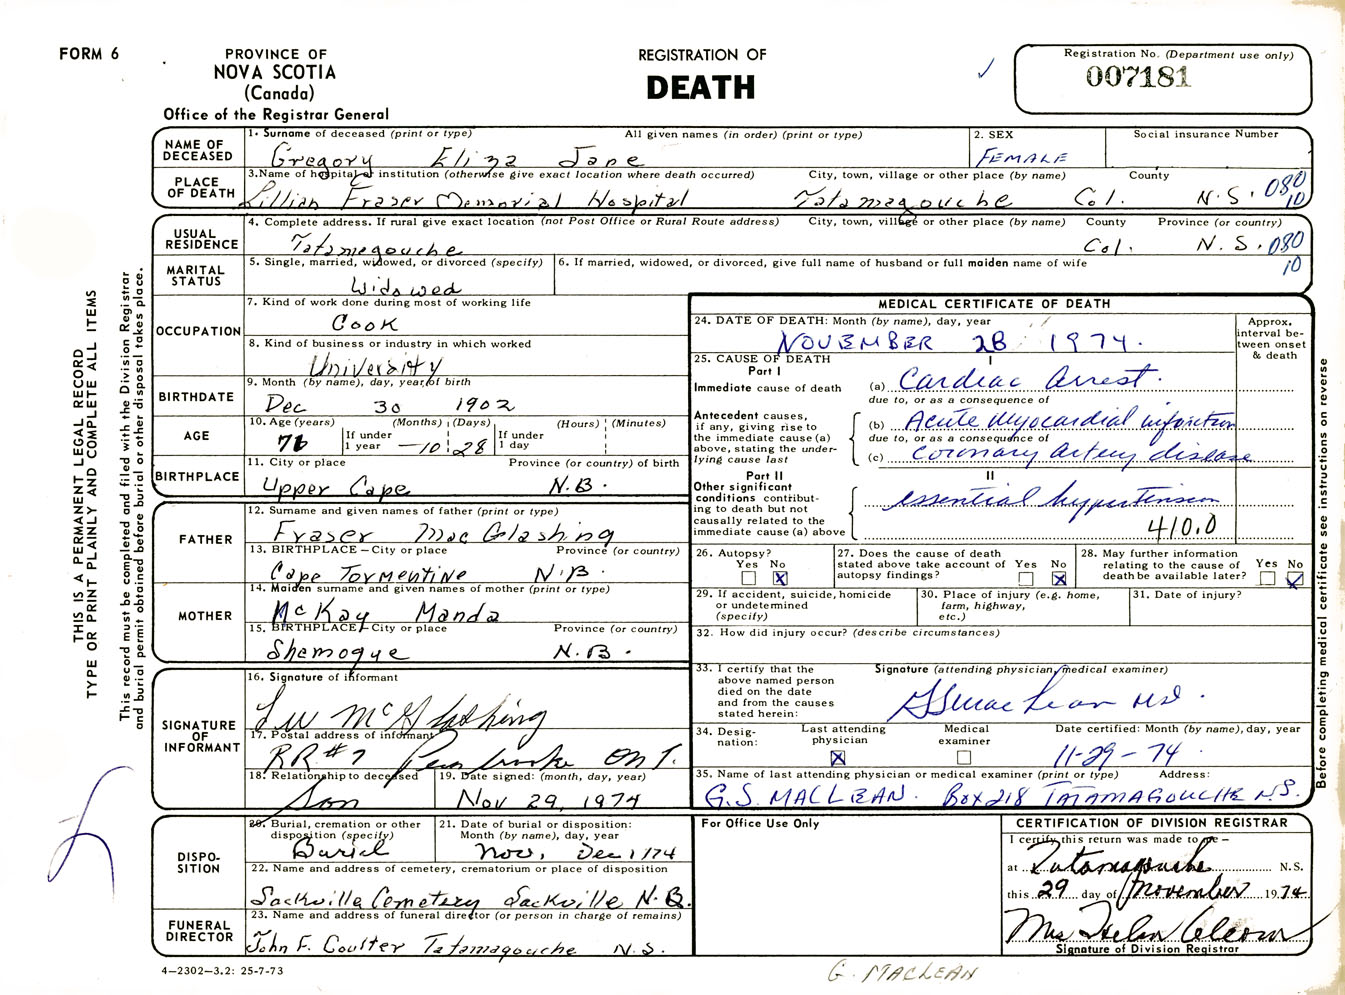 FORM 6
PROVINCE OF
NOVA SCOTIA
(Canada)
Office of the Registrar General
REGISTRATION OF
DEATH
Registration No. (Department use only)
007181
NAME OF DECEASED
1. Surname of deceased (print or type) All given names (in order) (print or type)
Gregory Eliza Jane
2. SEX
FEMALE
Social insurance Number
PLACE OF DEATH
3.Name of hospital or institution (otherwise give exact location where death occurred) City, town, village or other place (by name) County
Lillian Fraser Memorial Hospital Tatamagouche Col. N.S. 080
10
USUAL RESIDENCE
4. Complete address. If rural give exact location (not Post Office or Rural Route address) City, town, village or other place (by name) County Province (or country)
Tatamagouche Col. N.S. 080
10
MARITAL STATUS
5. Single, married, widowed, or divorced (specify)
Widowed
6. If married, widowed, or divorced, give full name of husband or full maiden name of wife
OCCUPATION
7. Kind of work done during most of working life
Cook
8. Kind of business or industry in which worked
University
BIRTHDATE
9. Month (by name), day, year of birth
Dec 30 1902
AGE
10. Age (years) (Months) (Days) (Hours) (Minutes)
If under 1 year 10 28 If under 1 day
BIRTHPLACE
11. City or place Province (or country) of birth
Upper Cape N.B.
FATHER
12. Surname and given names of father (print or type)
Fraser MacGlashing
13. BIRTHPLACE – City or place Province (or country)
Cape Tormentine N.B.
MOTHER
14. Maiden surname and given names of mother (print or type)
McKay Manda
15. BIRTHPLACE – City or place Province (or country)
Shemogue N.B.
SIGNATURE OF INFORMANT
16. Signature of informant
McGlashing
17. Postal address of informant
RR#7 Pembroke ONT.
18. Relationship to deceased
Son
19. Date signed: (month, day, year)
Nov 29, 1974
DISPO-
SITION
20. Burial, cremation or other disposition (specify)
Burial
21. Date of burial or disposition:
Month (by name), day, year
Nov. Dec 1/74
22. Name and address of cemetery, crematorium or place of disposition
Sackville Cemetery Sackville N.B.
FUNERAL DIRECTOR
23. Name and address of funeral director (or person in charge of remains)
John F. Coulter Tatamagouche N.S.
MEDICAL CERTIFICATE OF DEATH
24. DATE OF DEATH: Month (by name), day, year
NOVEMBER 28 1974.
Approx. interval be-
tween onset & death
25. CAUSE OF DEATH
Part I
I
Immediate cause of death
(a) Cardiac Arrest.
due to, or as a consequence of
Antecedent causes,
if any, giving rise to
the immediate cause (a)
above, stating the under-
lying cause last
(b) Acute Myocardial infarction
due to, or as a consequence of
(c) Coronary artery disease
Part II
II
Other significant
conditions contribut-
ing to death but not
causally related to the
immediate cause (a) above
essential hypertension
410.0
26. Autopsy?
Yes No
27. Does the cause of death
stated above take account of
autopsy findings?
Yes No
28. May further information
relating to the cause of
death be available later?
Yes No
29. If accident, suicide, homicide
or undetermined
(specify)
30. Place of injury (e.g. home,
farm, highway,
etc.)
31. Date of injury?
32. How did injury occur? (describe circumstances)
33. I certify that the
above named person
died on the date
and from the causes
stated herein:
Signature (attending physician, medical examiner)
GSMacLean MD
34. Desig-
nation:
Last attending physician
Medical examiner
Date certified: Month (by name), day, year
11-29-74
35. Name of last attending physician or medical examiner (print or type) Address:
G.S. MACLEAN. Box 218 TATAMAGOUCHE N.S.
For Office Use Only
CERTIFICATION OF DIVISION REGISTRAR
I certify this return was made to me –
at Tatamagouche N.S.
this 29 day of November 1974
Mrs Helen
Signature of Division Registrar
4–2302–3.2: 25-7-73
G. MACLEAN
THIS IS A PERMANENT LEGAL RECORD
TYPE OR PRINT PLAINLY AND COMPLETE ALL ITEMS
This record must be completed and filed with the Division Registrar
and burial permit obtained before burial or other disposal takes place.
Before completing medical certificate see instructions on reverse